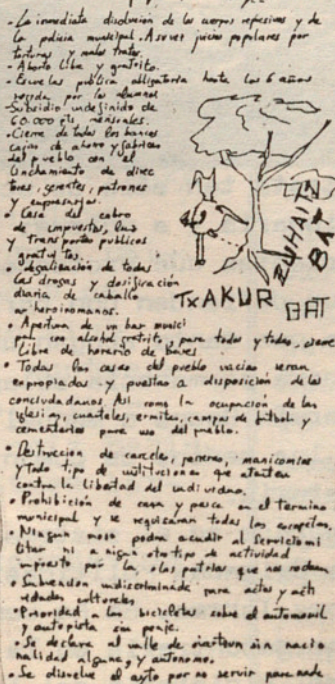 - La inmediata disolución de los cuerpos represivos y de
la policia municipal. Asever juicios populares por
torturas y malos tratos.
- Aborto libe y gratuito.
- Escuelas publica obligatoria hasta los 6 años
regida por los alumnos
- Subsidio indefinido de
60.000 pts mensuales.
- Cierre de todos los bancos
cajas de ahorro y fabricas
del pueblo con el
linchamiento de direc
tores, gerentes, patrones
y empresarios.
• Cese del cobro
de impuestos, luz
y transportes publicos
gratuitos.
• Legalización de todas
las drogas y dosificación
diaria de caballo
a heroinomanos.
TXAKUR BAT
ZUHAITZ BAT
• Apertura de un bar munici
pal con alcohol gratuito, para todos y todas, cierre
Libre de horario de bares
• Todas las casas del pueblo vacias, seran
expropiadas y puestas a disposición de los
conciudadanos. Asi como la ocupación de las
iglesias, cuarteles, ermitas, campos de futbol y
cementerios para uso del pueblo.
• Destruccion de carceles, perreras, manicomios
y todo tipo de instituciones que atenten
contra la libertad del individuo.
• Prohibición de caza y pesca en el termino
municipal y se requisaran todas las escopetas.
• Ningun mozo podra acudir al servicio mi
litar ni a nigun otro tipo de actividad
impuesto por la, o las patrias que nos rodean
• Subvencion indiscriminada para actos y acti
vidades culturales
• Prioridad a las bicicletas sobre el automovil
y autopista sin peaje.
• Se declara al valle de sin nacio
nalidad alguna, y autonomo.
• Se disuelve el ayto por no servir para nada